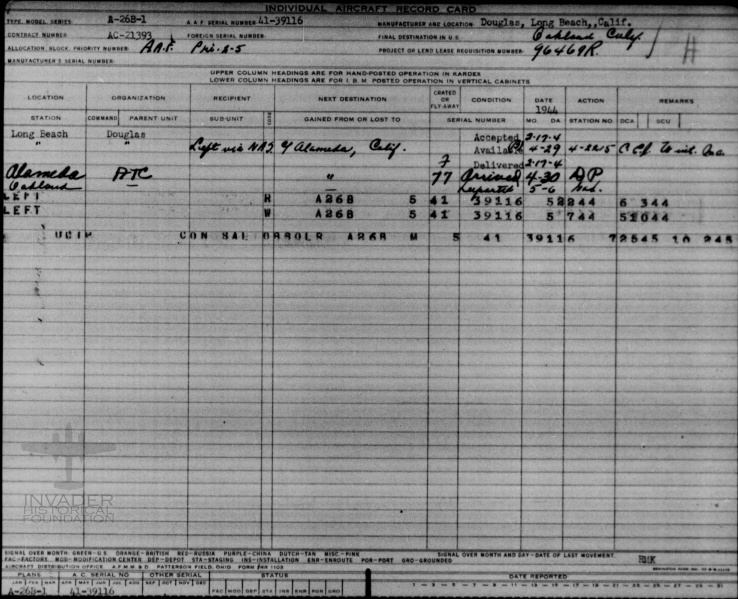 INDIVIDUAL AIRCRAFT RECORD CARD
TYPE, MODEL, SERIES A-26B-1 A. A. F. SERIAL NUMBER 41-39116 MANUFACTURER AND LOCATION Douglas, Long Beach,,Calif.
CONTRACT NUMBER AC-21393 FOREIGN SERIAL NUMBER FINAL DESTINATION IN U.S. Oakland
ALLOCATION, BLOCK, PRIORITY NUMBER A.A.F. Pri. A-5 PROJECT OR LEND LEASE REQUISITION NUMBER 96469R
MANUFACTURER'S SERIAL NUMBER
UPPER COLUMN HEADINGS ARE FOR HAND-POSTED OPERATION IN KARDEX
LOWER COLUMN HEADINGS ARE FOR I. B. M. POSTED OPERATION IN VERTICAL CABINETS
LOCATION ORGANIZATION RECIPIENT NEXT DESTINATION CRATED OR FLY-AWAY CONDITION DATE 1944 ACTION REMARKS
STATION COMMAND PARENT UNIT SUB-UNIT CODE GAINED FROM OR LOST TO SERIAL NUMBER MO. DA STATION NO DCA SCU
Long Beach Douglas Accepted 2-17-4
" " Left via NAS Alameda, Calif. Available 4-29 4-2215
7 Delivered 2-17-4
Alameda ATC " 77 Arrived 4-30 AP
Oakland — — Departed 5-6
LEFT R A26B 5 41 39116 52244 6 344
LEFT W A26B 5 41 39116 5 744 51044
CON SAL A26B M 5 41 39116 72545 10 245
INVADER
HISTORICAL
FOUNDATION
SIGNAL OVER MONTH: GREEN-U.S. ORANGE-BRITISH RED-RUSSIA PURPLE-CHINA DUTCH-TAN MISC.-PINK SIGNAL OVER MONTH AND DAY-DATE OF LAST MOVEMENT
FAC-FACTORY MOD-MODIFICATION CENTER DEP-DEPOT STA-STAGING INS-INSTALLATION ENR-ENROUTE POR-PORT GRO-GROUNDED
AIRCRAFT DISTRIBUTION OFFICE A.F.M.M.& D PATTERSON FIELD, OHIO
PLANS A. C. SERIAL NO OTHER SERIAL STATUS DATE REPORTED
JAN FEB MAR APR MAY JUN JUL AUG SEP OCT NOV DEC FAC MOD DEP STA INS ENR POR GRO
A-26B-1 41-39116